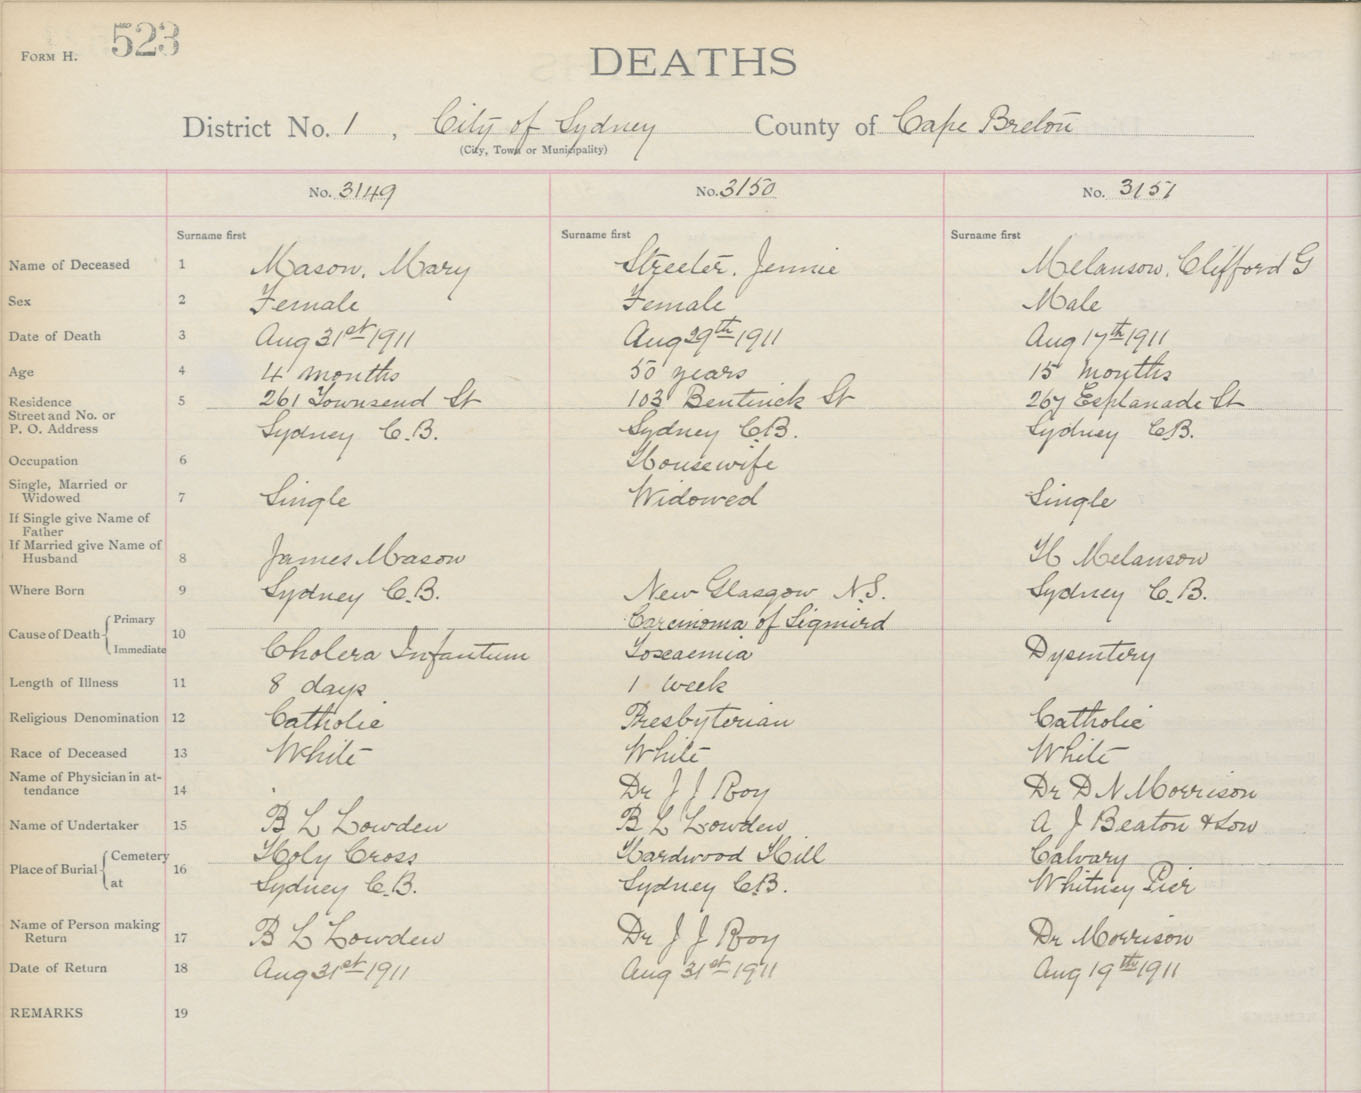 FORM H. 523
DEATHS
District No. 1, City of Sydney County of Cape Breton
(City, Town or Municipality)
No. 3149 No. 3150 No. 3151
Surname first Surname first Surname first
Name of Deceased 1 Mason, Mary Streeter, Jennie Melanson, Clifford G
Sex 2 Female Female Male
Date of Death 3 Aug 31st 1911 Aug 29th 1911 Aug 17th 1911
Age 4 4 months 50 years 15 months
Residence 5 261 Townsend St 103 Bentinck St 267 Esplanade St
Street and No. or
P. O. Address Sydney C.B. Sydney C.B. Sydney C.B.
Occupation 6 Housewife
Single, Married or
Widowed 7 Single Widowed Single
If Single give Name of
Father
If Married give Name of
Husband 8 James Mason H Melanson
Where Born 9 Sydney C.B. New Glasgow N.S. Sydney C.B.
Cause of Death Primary 10 Carcinoma of Sigmird
Immediate Cholera Infantum Toxaemia Dysentery
Length of Illness 11 8 days 1 week
Religious Denomination 12 Catholic Presbyterian Catholic
Race of Deceased 13 White White White
Name of Physician in at-
tendance 14 Dr J J Roy Dr D N Morrison
Name of Undertaker 15 B L Lowden B L Lowden A J Beaton & Son
Place of Burial Cemetery 16 Holy Cross Hardwood Hill Calvary
at Sydney C.B. Sydney C.B. Whitney Pier
Name of Person making
Return 17 B L Lowden Dr J J Roy Dr Morrison
Date of Return 18 Aug 31st 1911 Aug 31st 1911 Aug 19th 1911
REMARKS 19